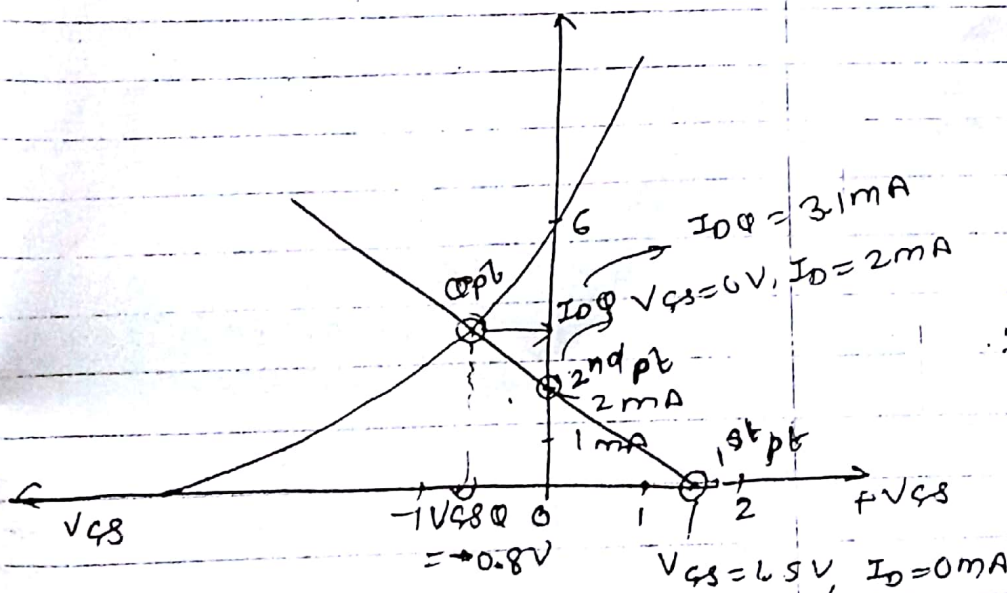 6
IDQ = 3.1mA
Qpt
IDQ VGS=0V, ID=2mA
2nd pt
2mA
1mA
1st pt
VGS
-1 VGSQ 0 1 2 +VGS
= -0.8V
VGS=1.5V, ID=0mA